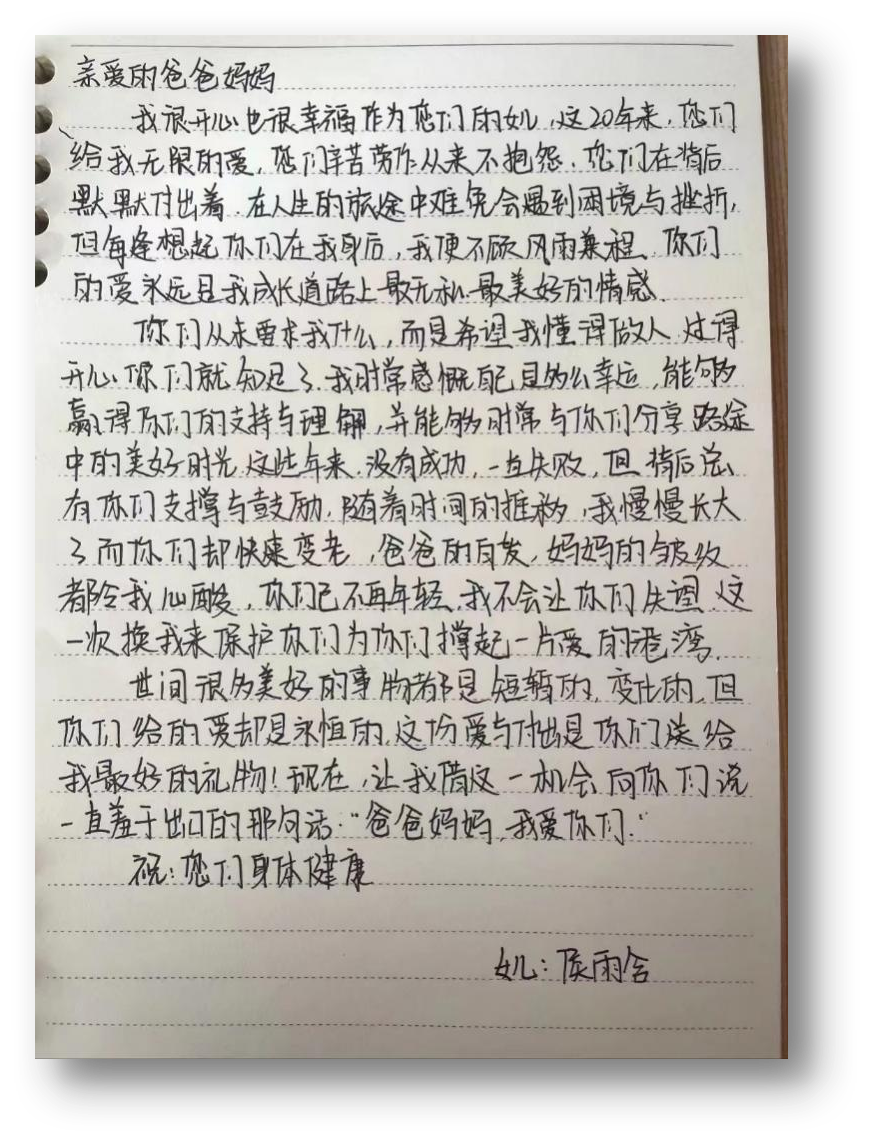 亲爱的爸爸妈妈
我很开心也很幸福作为您们的女儿,这20年来,您们
给我无限的爱,您们辛苦劳作从来不抱怨,您们在背后
默默付出着,在人生的旅途中难免会遇到困境与挫折,
但每逢想起你们在我身后,我便不顾风雨兼程,你们
的爱永远是我成长道路上最无私最美好的情感.
你们从未要求我什么,而是希望我懂得做人,过得
开心你们就知足了,我时常感慨自己是多么幸运,能够
赢得你们的支持与理解,并能够时常与你们分享路途
中的美好时光,这些年来,没有成功,一直失败,但背后总
有你们支撑与鼓励,随着时间的推移,我慢慢长大
了而你们却快速变老,爸爸的白发,妈妈的皱纹
都令我心酸,你们已不再年轻,我不会让你们失望,这
一次换我来保护你们为你们撑起一片爱的港湾。
世间很多美好的事物都是短暂的,变化的,但
你们给的爱却是永恒的,这份爱与付出是你们送给
我最好的礼物!现在,让我借这一机会向你们说
一直羞于出口的那句话:“爸爸妈妈,我爱你们.”
祝:您们身体健康
女儿:陈雨含